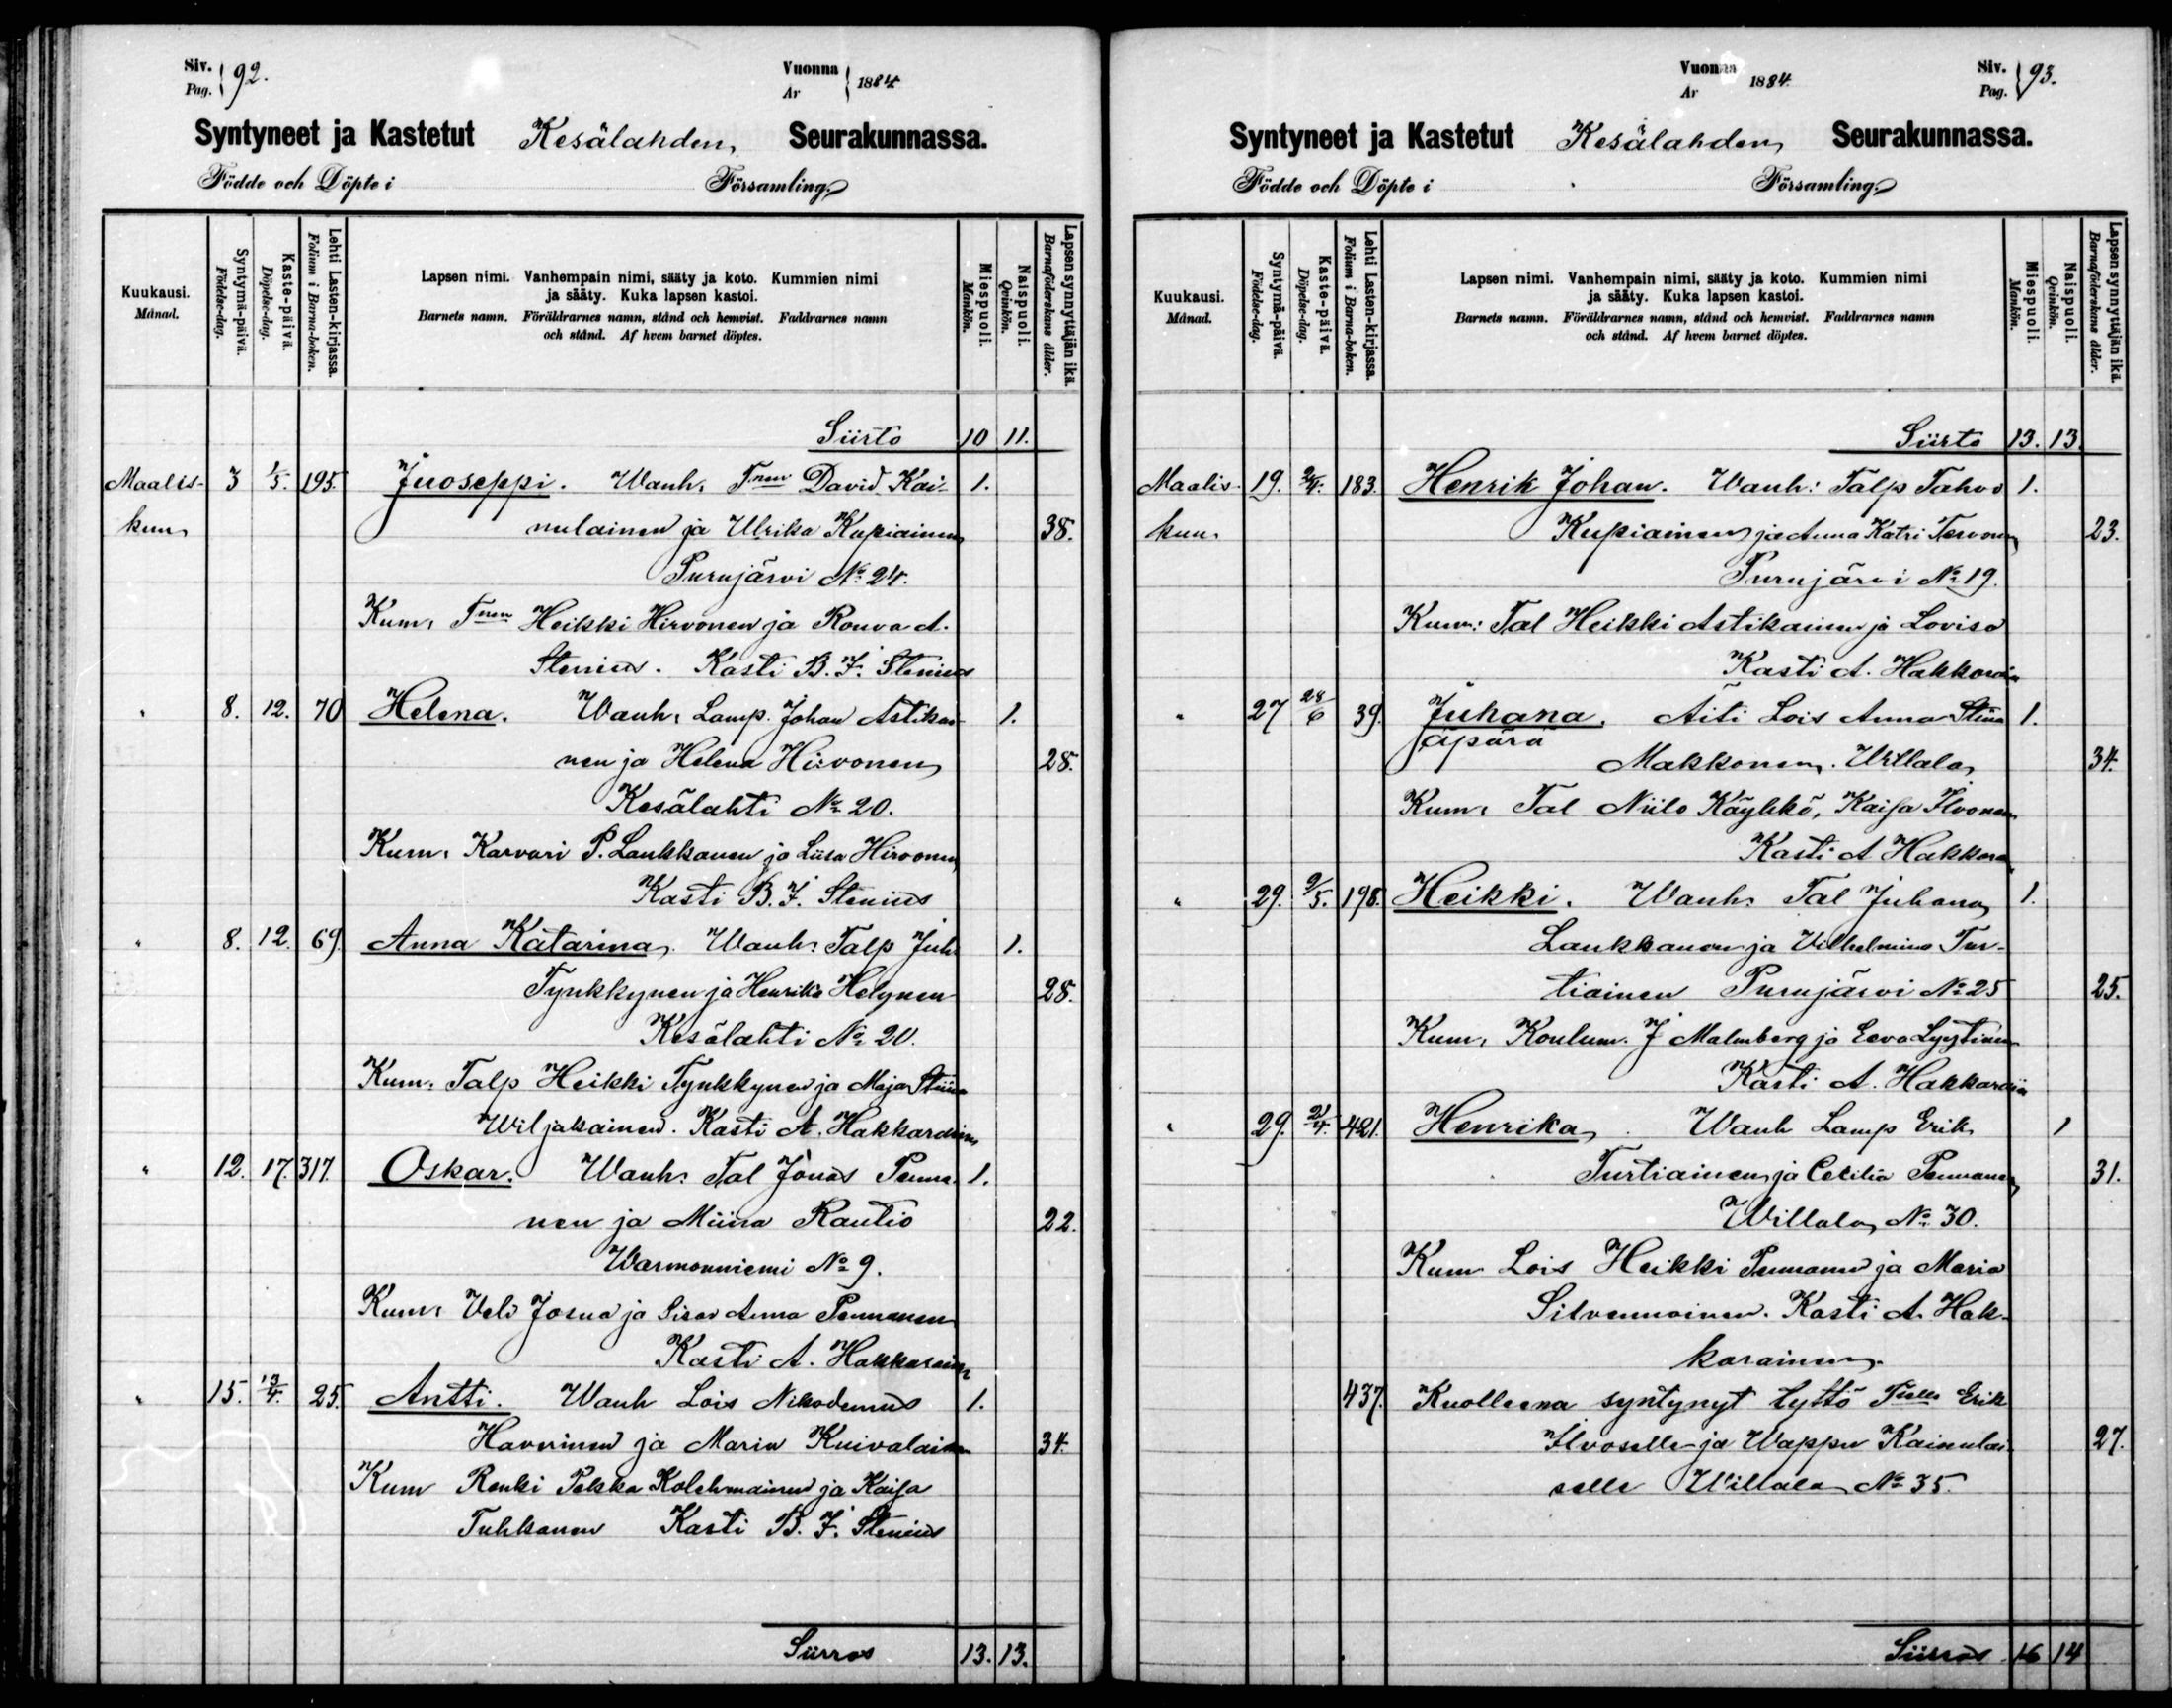 Siv. Pag. 92.
Vuonna Ar 1884
Syntyneet ja Kastetut Kesälahden Seurakunnassa.
Födde och Döpte i Församling.
Kuukausi. Månad.
Syntymä-päivä. Födelse-dag.
Kaste-päivä. Döpelse-dag.
Lehti Lasten-kirjassa. Folium i Barna-boken.
Lapsen nimi. Vanhempain nimi, sääty ja koto. Kummien nimi
ja sääty. Kuka lapsen kastoi.
Barnets namn. Föräldrarnes namn, stånd och hemvist. Faddrarnes namn
och stånd. Af hvem barnet döptes.
Miespuoli. Mankön.
Naispuoli. Qvinkön.
Lapsen synnyttäjän ikä. Barnaföderskans ålder.
Siirto 10 11.
Maalis- 3 1/5. 195. Juoseppi. Wanh: Tnen David Kai- 1.
kuu nulainen ja Ulrika Kupiainen 38.
Purujärvi No 24.
Kum: Tnen Heikki Hirvonen ja Rouva A.
Stenius. Kasti B. J. Stenius
" 8. 12. 70 Helena. Wanh: Lamp. Johan Astikai- 1.
nen ja Helena Hirvonen 28.
Kesälahti No 20.
Kum: Karvari P. Laukkanen ja Liisa Hirvonen
Kasti B. J. Stenius
" 8. 12. 69. Anna Katarina. Wanh: Talp Juh. 1.
Tynkkynen ja Henrika Helynen 28.
Kesälahti No 20.
Kum: Talp Heikki Tynkkynen ja Maja Stiina
Wiljakainen. Kasti A. Hakkarainen
" 12. 17. 317. Oskar. Wanh: Tal Jonas Penna- 1.
nen ja Miina Rautio 22.
Warmonniemi No 9.
Kum: Veli Josua ja Sisar Anna Pennanen
Kasti A. Hakkarainen
" 15. 13/4. 25. Antti. Wanh Lois Nikodemus 1.
Hanninen ja Maria Kuivalainen 34.
Kum Renki Pekka Kolehmainen ja Kaisa
Tuhkanen Kasti B. J. Stenius
Siirros 13. 13.
Vuonna Ar 1884.
Siv. Pag. 93.
Syntyneet ja Kastetut Kesälahden Seurakunnassa.
Födde och Döpte i Församling.
Kuukausi. Månad.
Syntymä-päivä. Födelse-dag.
Kaste-päivä. Döpelse-dag.
Lehti Lasten-kirjassa. Folium i Barna-boken.
Lapsen nimi. Vanhempain nimi, sääty ja koto. Kummien nimi
ja sääty. Kuka lapsen kastoi.
Barnets namn. Föräldrarnes namn, stånd och hemvist. Faddrarnes namn
och stånd. Af hvem barnet döptes.
Miespuoli. Mankön.
Naispuoli. Qvinkön.
Lapsen synnyttäjän ikä. Barnaföderskans ålder.
Siirto 13. 13.
Maalis- 19. 183. Henrik Johan. Wanh: Talp Tahvo 1.
kuu Kupiainen ja Anna Katri Tervonen 23.
Purujärvi No 19.
Kum: Tal Heikki Astikainen ja Lovisa
Kasti A. Hakkarain
" 27 28/6 39. Juhana. Äiti Lois Anna Stiina 1.
äpärä Makkonen. Willala 34.
Kum: Tal Niilo Käyhkö, Kaisa Ilvonen
Kasti A Hakkara
" 29. 9/5. 198. Heikki. Wanh: Tal Juhana 1.
Laukkanen ja Vilhelmina Tur-
tiainen Purujärvi No 25 25.
Kum: Koulum. J Malmberg ja Eeva Lyytinen
Kasti A. Hakkarain
" 29. 21/4. 421. Henrika. Wanh Lamp Erik 1
Turtiainen ja Cecilia Pennanen 31.
Willala No 30.
Kum Lois Heikki Pennanen ja Maria
Silvennoinen. Kasti A. Hak-
karainen.
437. Kuolleena syntynyt tyttö Erik
Ilvoselle ja Wappu Kainulai
selle Willala No 35. 27.
Siirros 16 14